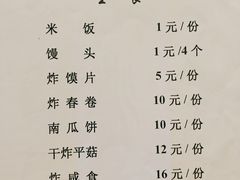 米饭 1元/份
馒头 1元/4个
炸馍片 5元/份
炸春卷 10元/份
南瓜饼 10元/份
干炸平菇 12元/份
炸咸食 16元/份